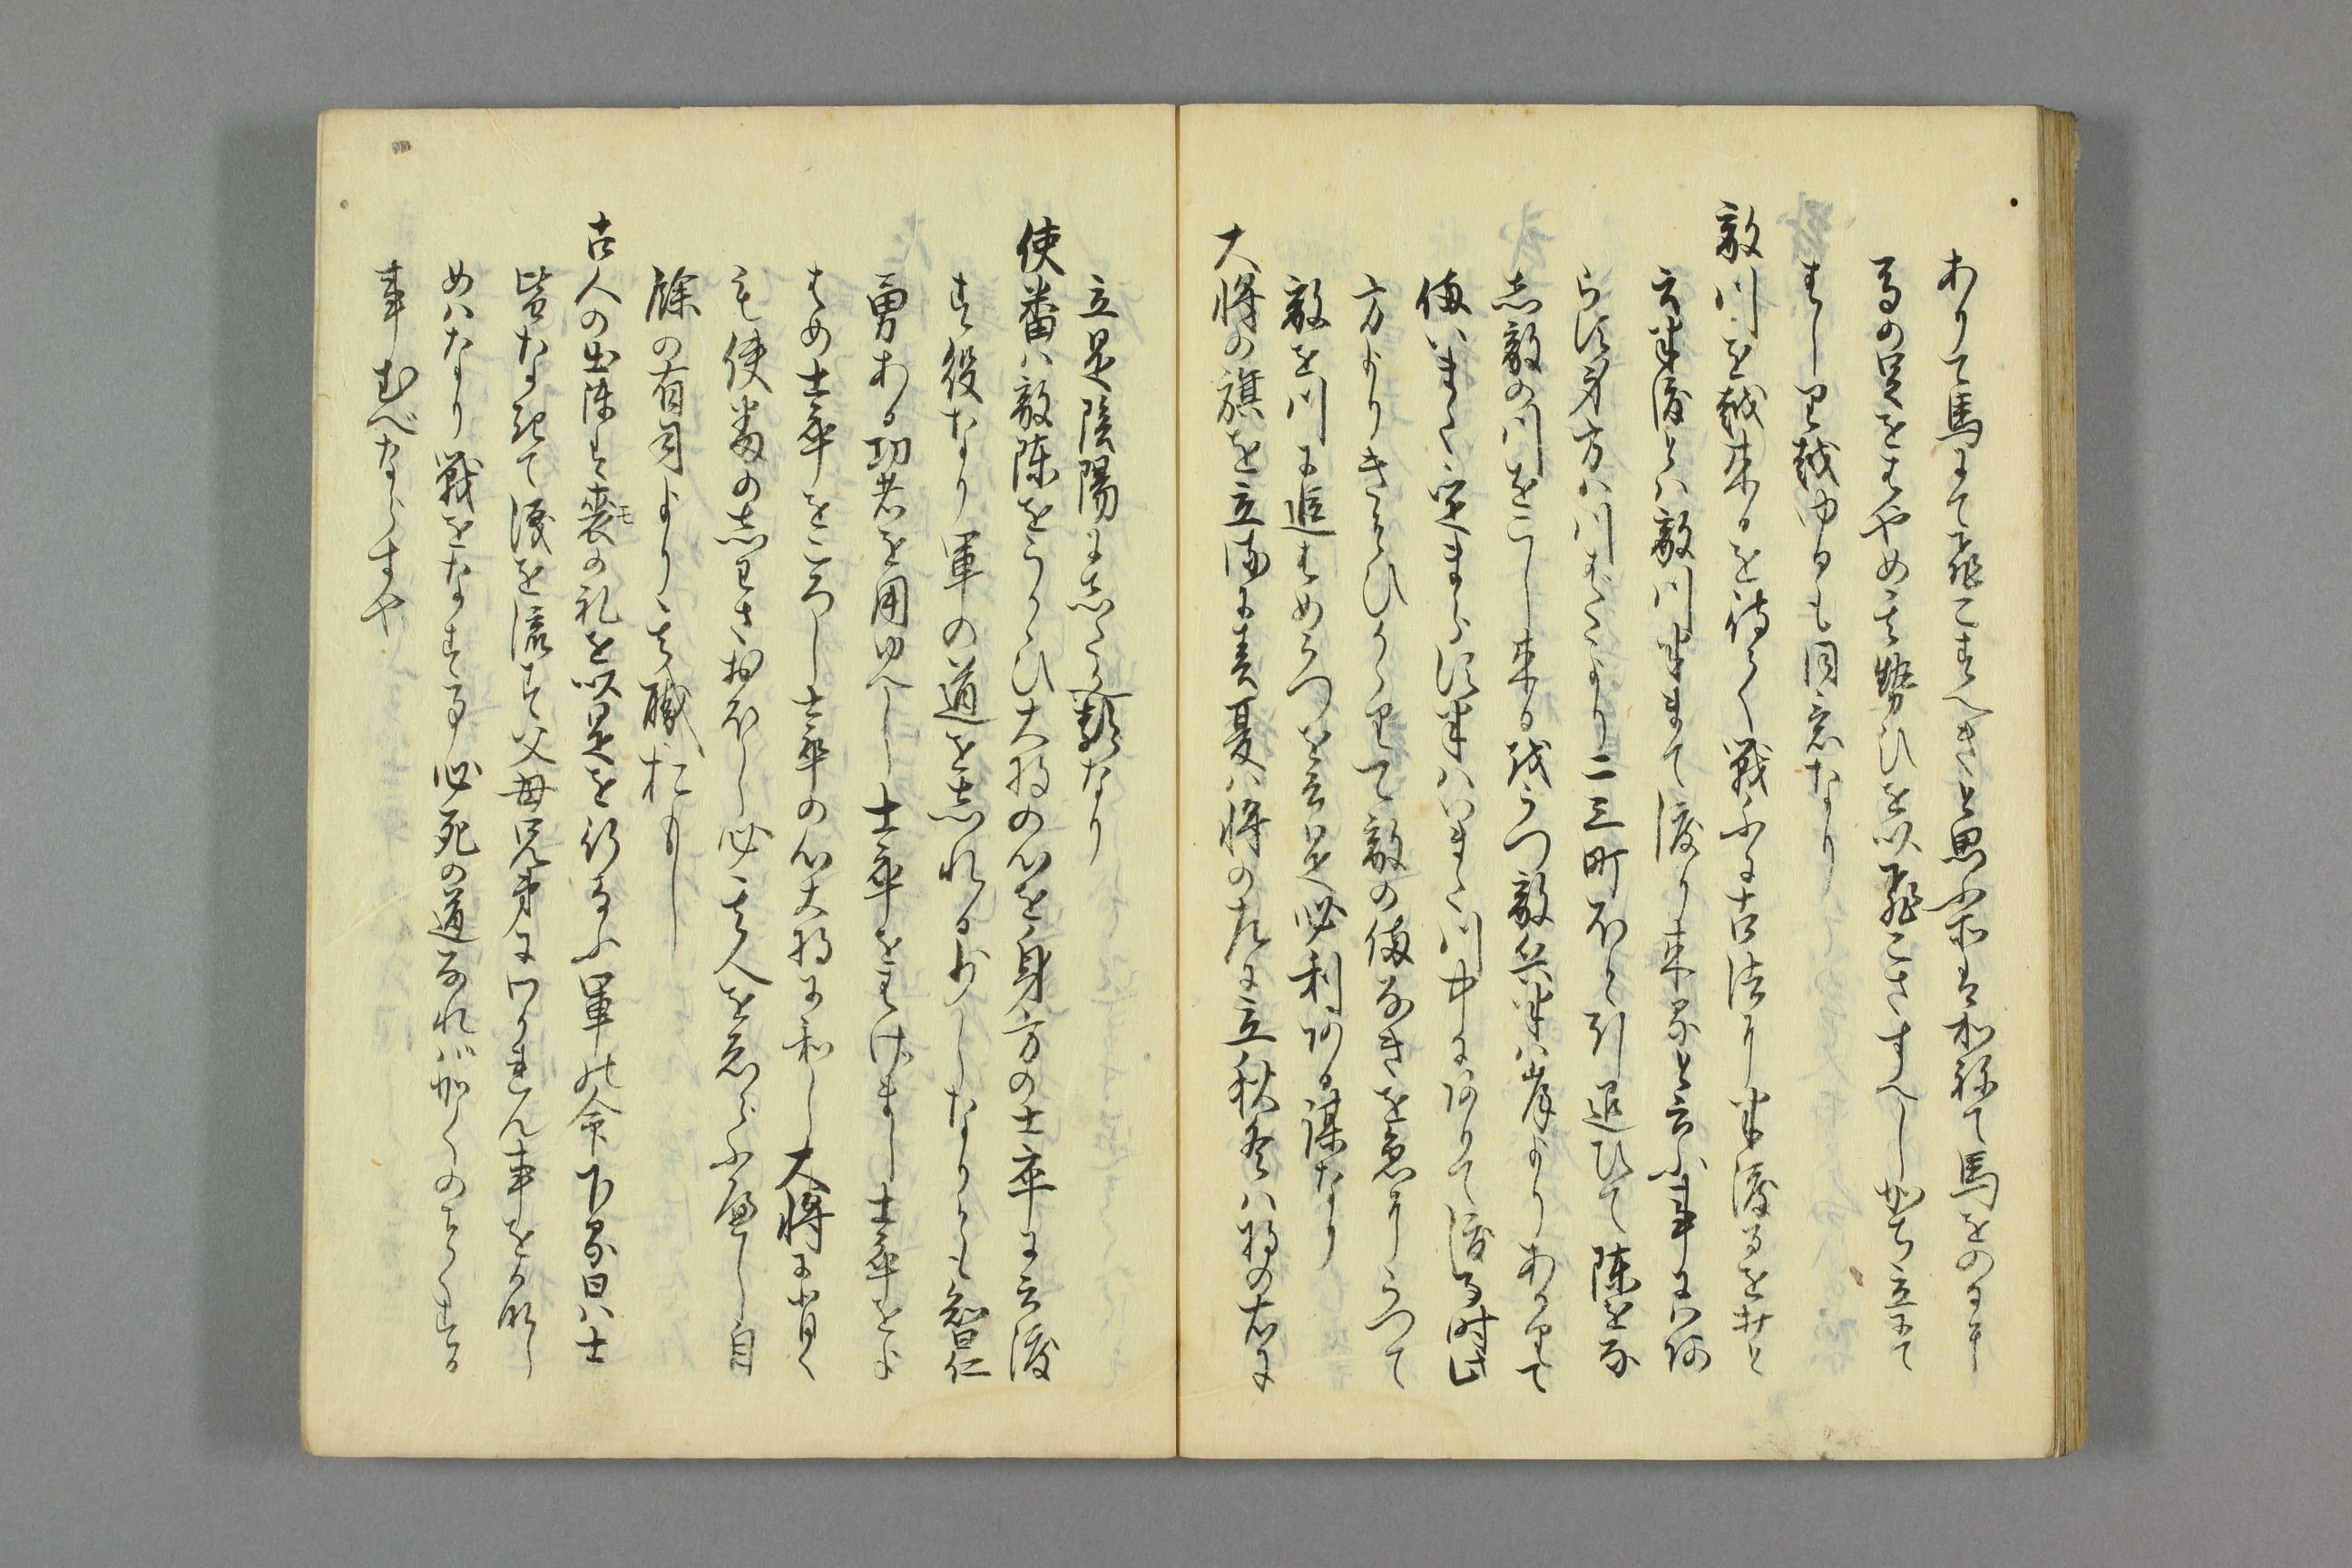 ありて馬にて飛こすへきと思ふ所は和稀て馬をのり
るの足をはやめ其勢ひを以飛こさすへしかち立にて
はしり越ゆるも同意なり
敵川を越来るを待て戦ふに古法に半渡るをうと
云半渡とハ敵川半まて渡り来ると云ふ事にハ阿
らす身方ハ川はたより二三町ほと引退ひて陳を取
志敵の川をこし来る我うつ敵兵半ハ岸よりあかりて
備いまた定まらす半ハいまた川中に阿りて渡る時此
方よりきをひかゝりて敵の備なきを急にうつて
敵を川に追はめうつを云是必利阿る謀なり
大将の旗を立るに春夏ハ将の左に立秋冬ハ将の右に
立是陰陽に志たかふ類なり
使番ハ敵陳をうかゝひ大将の心を身方の士卒に云渡
す役なり軍の道を志れる少しなりとも智仁
勇ある功者を用ゆへし士卒をはけまし士卒をと
とめ士卒をころし士卒の心大将に和し大将に背く
も使番の志わさおほし必其人を急らふ處し自
餘の有司より其職おもし
古人の出陳は喪の礼を以是を行なふ軍の命下る日ハ士
皆なきて涙を流す父母兄弟にわかれん事をかなし
めハなり戦をなす事必死の道なれバかくのことくする
事むべならすや